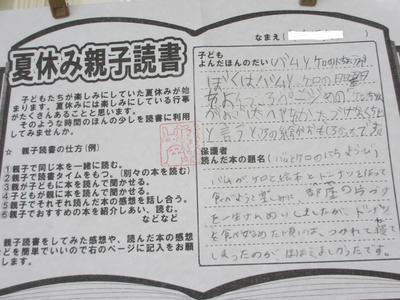 夏休み親子読書
子どもたちが楽しみにしていた夏休みが始
まります。夏休みには楽しみにしている行事
がたくさんあることと思います。
そのような時間のほんの少しを読書に利用
してみませんか。
☆ 親子読書の仕方（例）
1 親子で同じ本を一緒に読む。
2 親子で読書タイムをもつ。（別々の本を読む）
3 親が子どもに本を読んで聞かせる。
4 子どもが親に本を読んで聞かせる。
5 親子でそれぞれ読んだ本の感想を話し合う。
6 親子でおすすめの本を紹介しあい、読む。
などなど
親子読書をしてみた感想や、読んだ本の感想
などを簡単でいいので右のページに記入をお願
します。
なまえ（
子ども
よんだほんのだい（バムとケロの
ぼくはバムと、ケロの日曜
をよんで
と言うところの絵がおもしろかった
保護者
読んだ本の題名（バムとケロのにちようび）
バムがケロと絵本とドーナツをもって
食べようと楽しみに 部屋の片づけ
を一生けんめいしましたが、ドーナツ
を食べはじめた頃には、つかれて寝て
しまったのが ほほえましかったです。